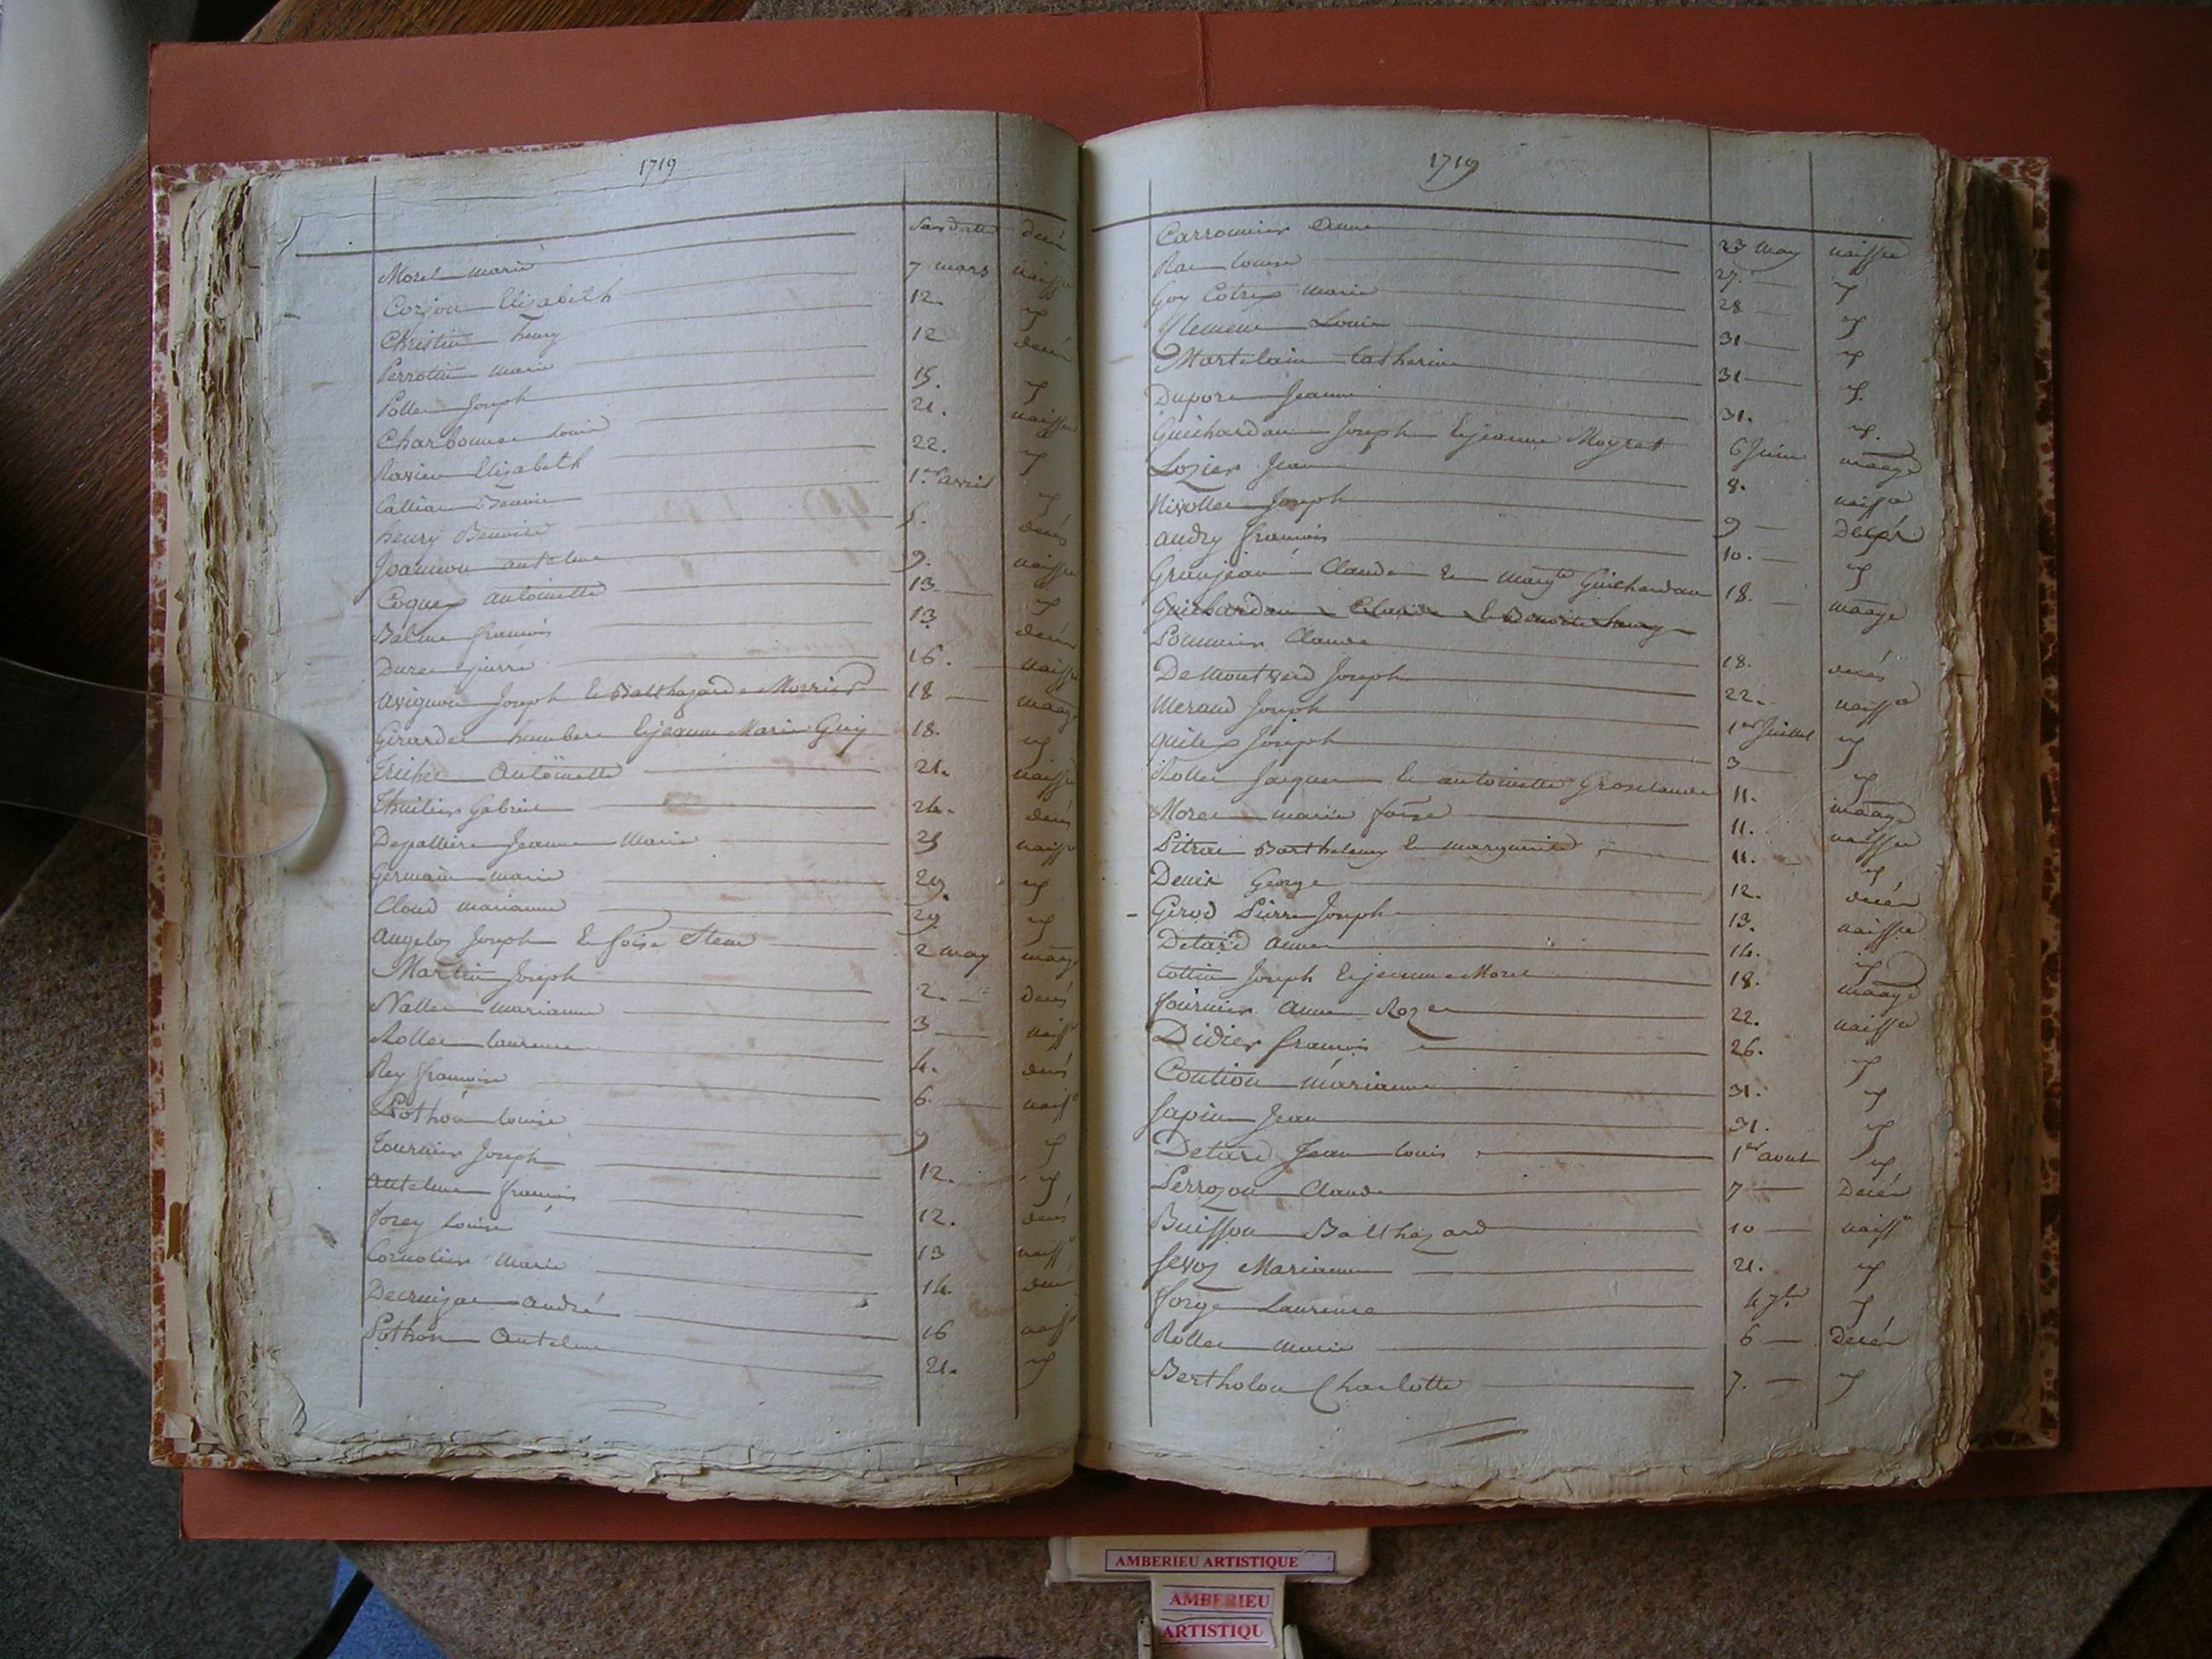 1719
Morel marie sans datte decès
Corjon Elisabeth 7 mars naissce
Christin henry 12. id
Perrotin marie 12 decès
Pollet Joseph 15. id
Charbonnet louis 21. naissce
Ravier Elizabeth 22. id
Calliat Benoit 1.er avril id
henry Benoite 5. decès
Joannon antelme 9. naissce
Coquex antoinette 13 id
Balme francois 13 decès
Duret pierre 16. naisse
avignon Joseph et Balthazarde Morrier 18 maage
Girardet humbert et jeanne Marie Guy 18. id
Trichet Antoinette 21. naissce
Thuilier Gabriel 24. decès
Depalliere Jeanne Marie 25 naissce
Germain marie 29. id
Cloud marianne 29. id
Angelot Joseph et foise Steve 2 may maage
Martin Joseph 2. decès
Nallet marianne 3 naissce
Rollet laurence 4. decès
Rey francoise 6. naissce
Pothon louise 9 id
Tournier Joseph 12. id
Antelme francois 12. decès
forey Louise 13 naissce
Cornotier Marie 14. decès
andré 16 naissce
Pothon Antelme 21. id
1719
Carronnier Anne 23 may naissce
Rat louise 27. id
Goy Cotrex marie 28 id
Clement Louis 31 id
Martelain Catherine 31 id
Duport Jeanne 31. id.
Guichardan Joseph et jeanne Moyret 6 Juin maage
Lozier Jean 8. naissce
Nivollet Joseph 9 Decès
audry francois 10. id
Granjean Claude et margte Guichardan 18. maage
Guichardan Claude et Benoite henry
Pommier Claude 18. decès
Demontverd Joseph 22. naissce
Meraud Joseph 1er Juillet id
quilex Joseph 3 id
Rollet Jacques et antoinette Grosclaude 11. maage
Morel marie foise 11. naissce
Pitrat Barthelemy et marguerite 11. id
Denis George 12. decès
Girod Pierre Joseph 13. naissce
Detard anne 14. id
Cottin Joseph et jeanne Morel 18. maage
fournier Anne Roze 22. naissce
Didier francois 26. id
Coution marianne 31. id
Sapin Jean 31. id
Detard Jean louis 1er aout id
Perrozon Claude 7 Decès
Buisson Balthazard 10 naissce
Sevoz Marianne 21. id
forge Laurence 4 7bre id
Rollet marie 6 Decès
Bertholon Charlotte 7. id
AMBERIEU ARTISTIQUE
AMBERIEU
ARTISTIQU